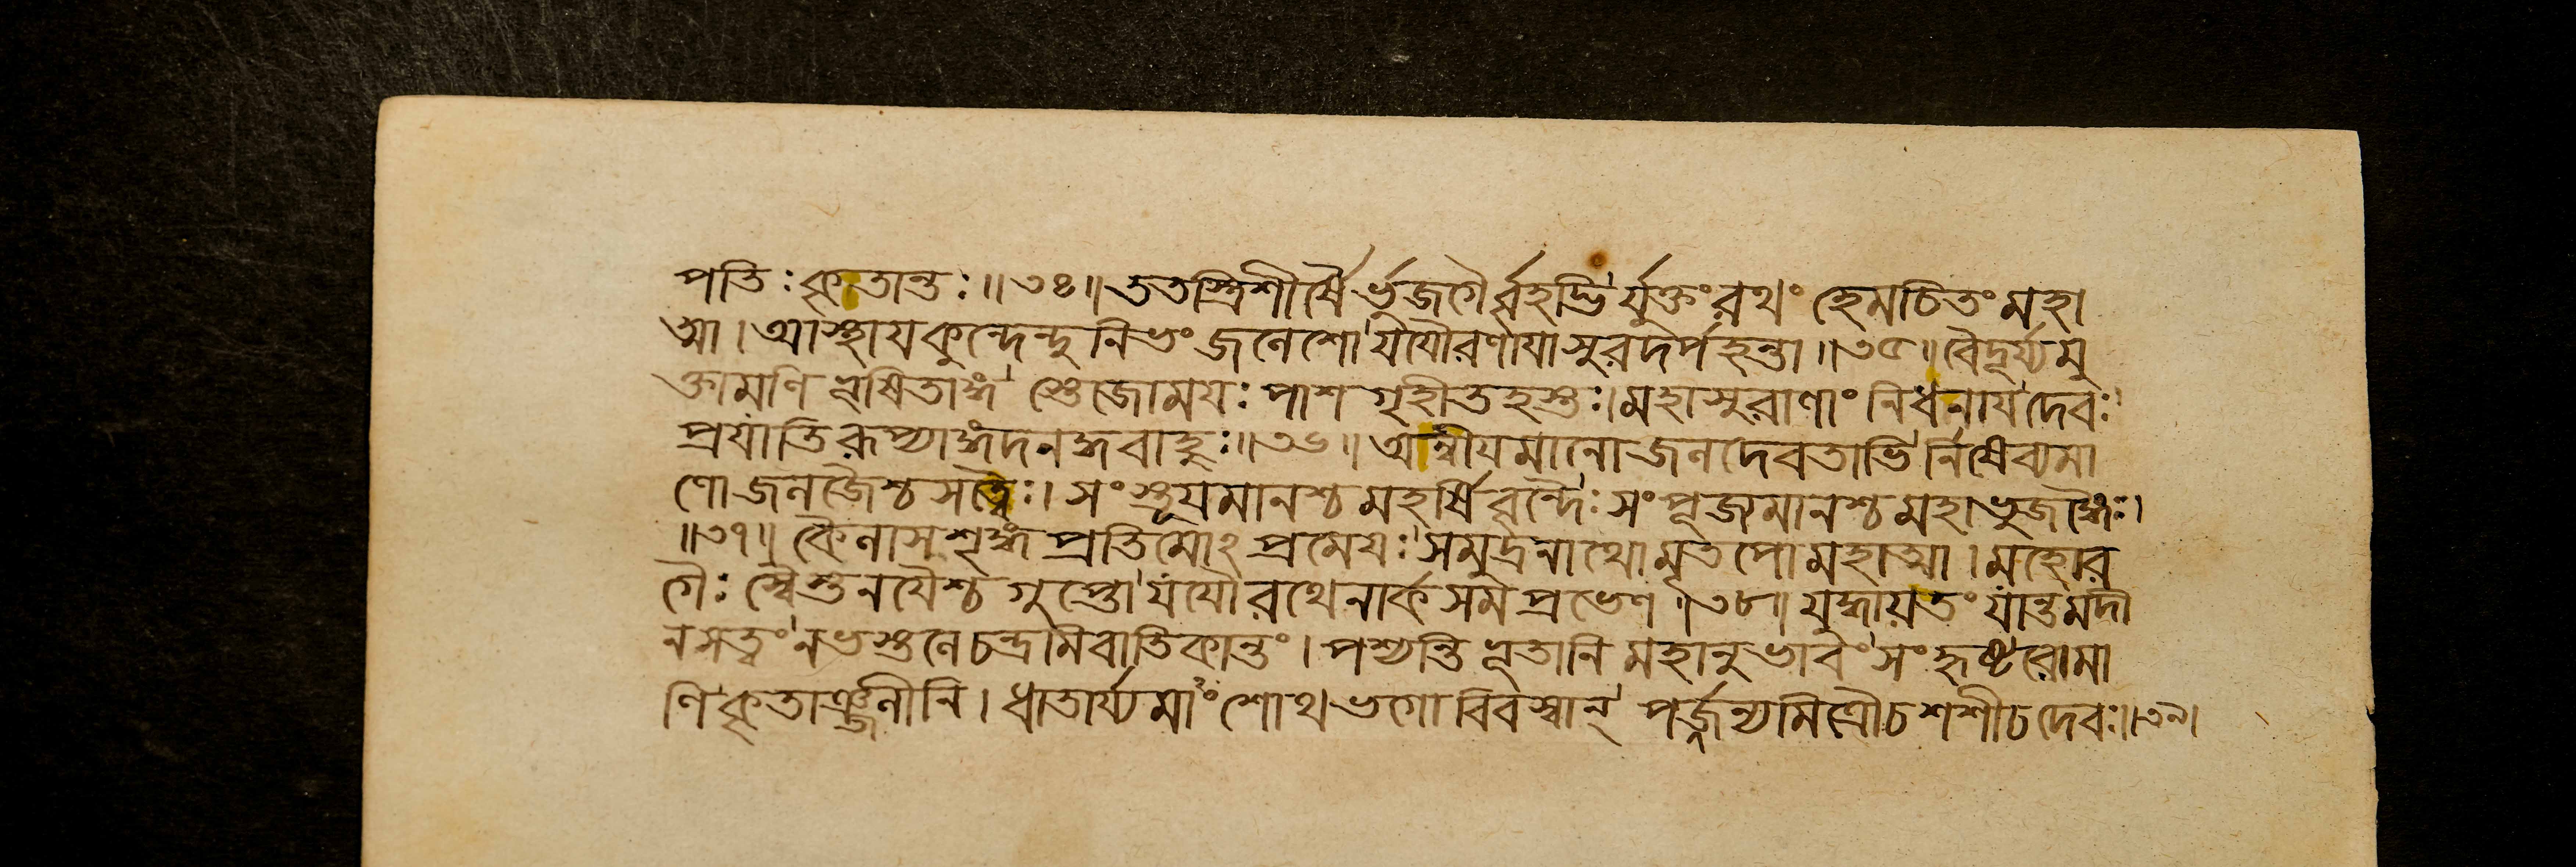 পতিঃ কৃতান্তঃ ॥৩৪॥ ততস্ত্রিশীর্ষৈর্ভুজগৈর্ব্বৃহদ্ভির্যুক্তং রথং হেমচিতং মহা
ত্মা । আস্থায কুন্দেন্দুনিভং জনেশো যযৌ রণাযাসুরদর্পহন্তা ॥৩৫॥ বৈদূর্য্যমু
ক্তামণিভূষিতাঙ্গস্তেজোমযঃ পাশগৃহীতহস্তঃ। মহাসুরাণাং নিধনায দেবঃ
প্রযাতি রূপ্যাঙ্গদনদ্ধবাহুঃ ॥৩৬॥ অন্বীযমানো জনদেবতাভির্নিষেব্যমা
ণো জনজৈশ্চ সত্ত্বৈঃ। সংস্তূযমানশ্চ মহর্ষিবৃন্দৈঃ সংপূজ্যমানশ্চ মহাভুজঙ্গৈঃ।
॥৩৭॥ কৈনাসশৃঙ্গপ্রতিমোঽপ্রমেযঃ সমুদ্রনাথো মৃতপো মহাত্মা । মহোর
গৈঃ স্বৈস্তনযৈশ্চ গুপ্তো যযৌ রথেনার্কসমপ্রভেণ ॥৩৮॥ যুদ্ধায তং যান্তমদী
নসত্বং নভস্তনে চন্দ্রমিবাতিকান্তং। পশ্যন্তি ভূতানি মহানুভাবং সংহৃষ্টরোমা
ণি কৃতাঞ্জনীনি । ধাতার্য্যমাংশোথ ভগো বিবস্বান্ পর্জ্জন্যমিত্রৌ চ শশী চ দেবঃ॥৩৯।